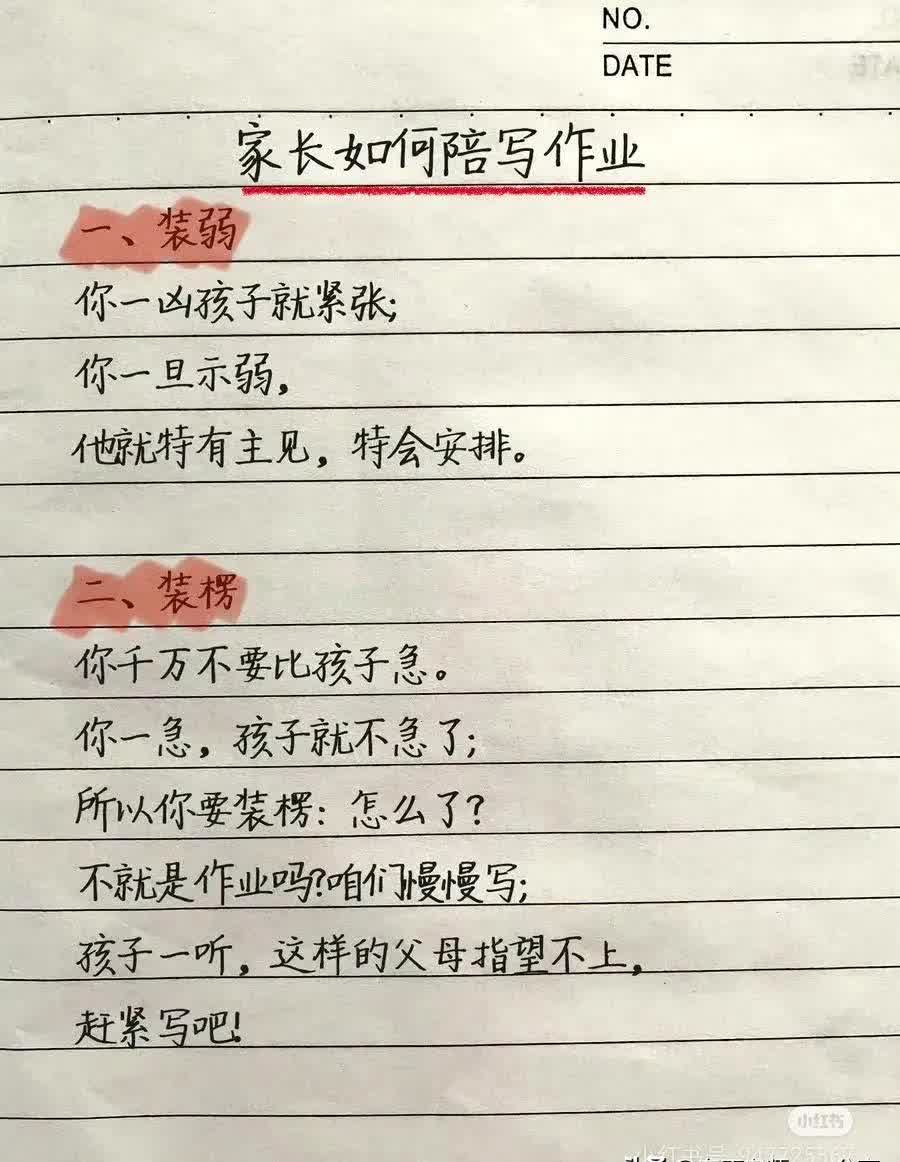 NO.
DATE
家长如何陪写作业
一、装弱
你一凶孩子就紧张;
你一旦示弱,
他就特有主见, 特会安排。
二、装楞
你千万不要比孩子急。
你一急, 孩子就不急了;
所以你要装楞: 怎么了?
不就是作业吗?咱们慢慢写;
孩子一听, 这样的父母指望不上,
赶紧写吧!
小红书